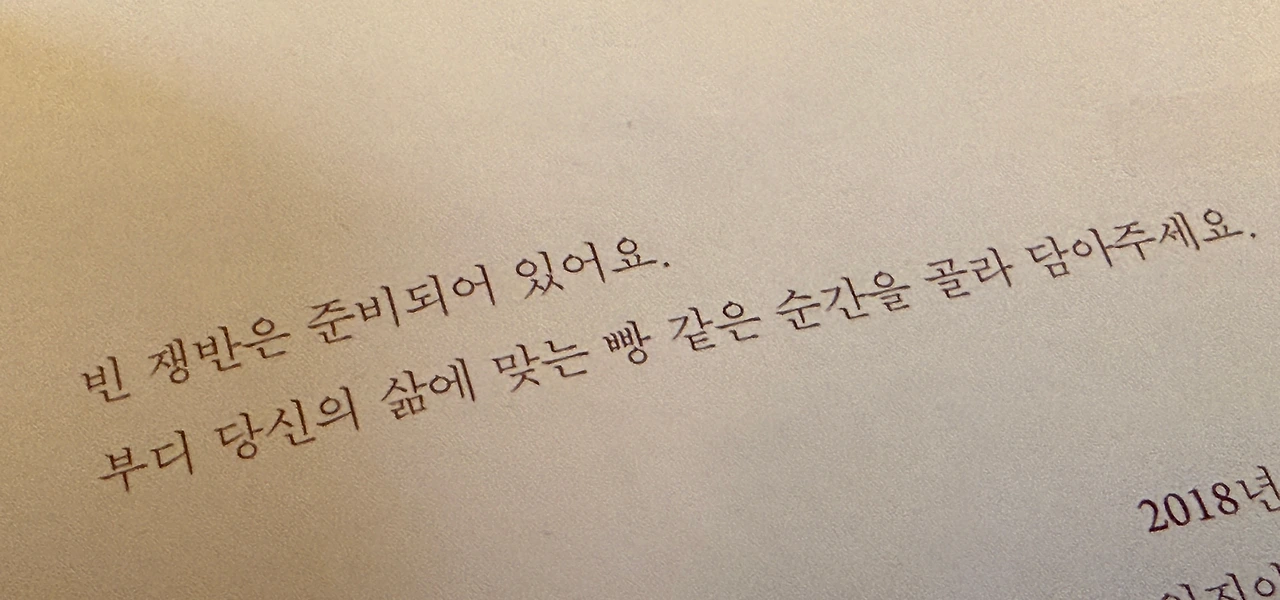 빈 쟁반은 준비되어 있어요.
부디 당신의 삶에 맞는 빵 같은 순간을 골라 담아주세요.
2018년